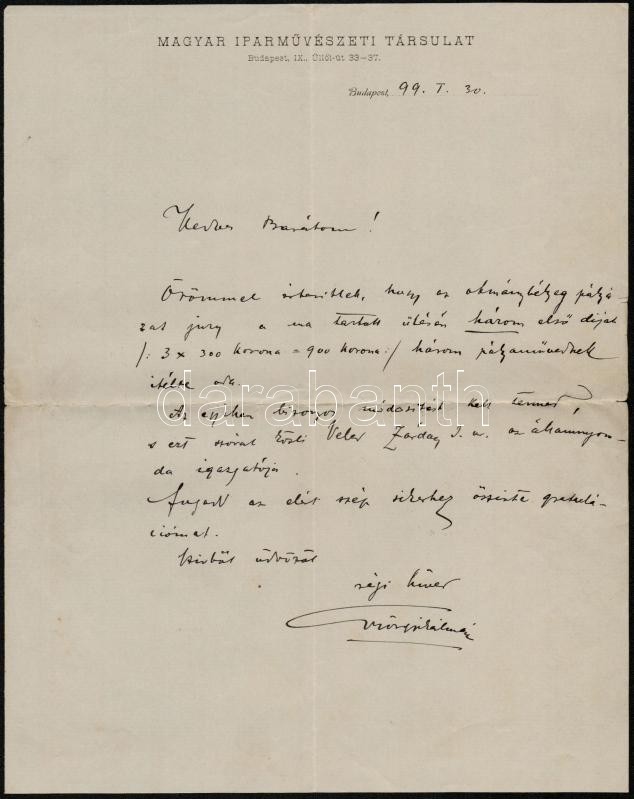 MAGYAR IPARMŰVÉSZETI TÁRSULAT
Budapest, IX., Üllői-út 33—37.
Budapest, 99. I. 30.
Kedves Barátom!
Örömmel értesitlek, hogy az okmánybélyeg pályá-
zat jury a ma tartott ülésén három első dijat
/: 3 x 300 korona = 900 korona :/ három pályaműved nek
itélte oda.
darabanth
Az egyiken bizonyos módositást kell tenned,
s ezt szóval közli Veled I. ur. az államnyom-
da igazgatója.
Fogadd az elért szép sikerhez őszinte gratulá-
ciómat.
Szivből üdvözöl
régi hived
Györgyi Kálmán